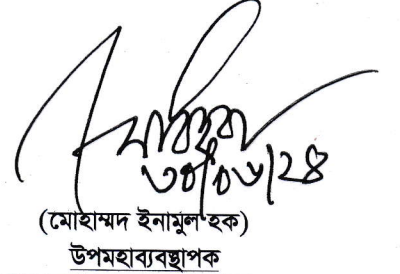 ৩০/০৬/২৪
(মোহাম্মদ ইনামুল হক)
উপমহাব্যবস্থাপক